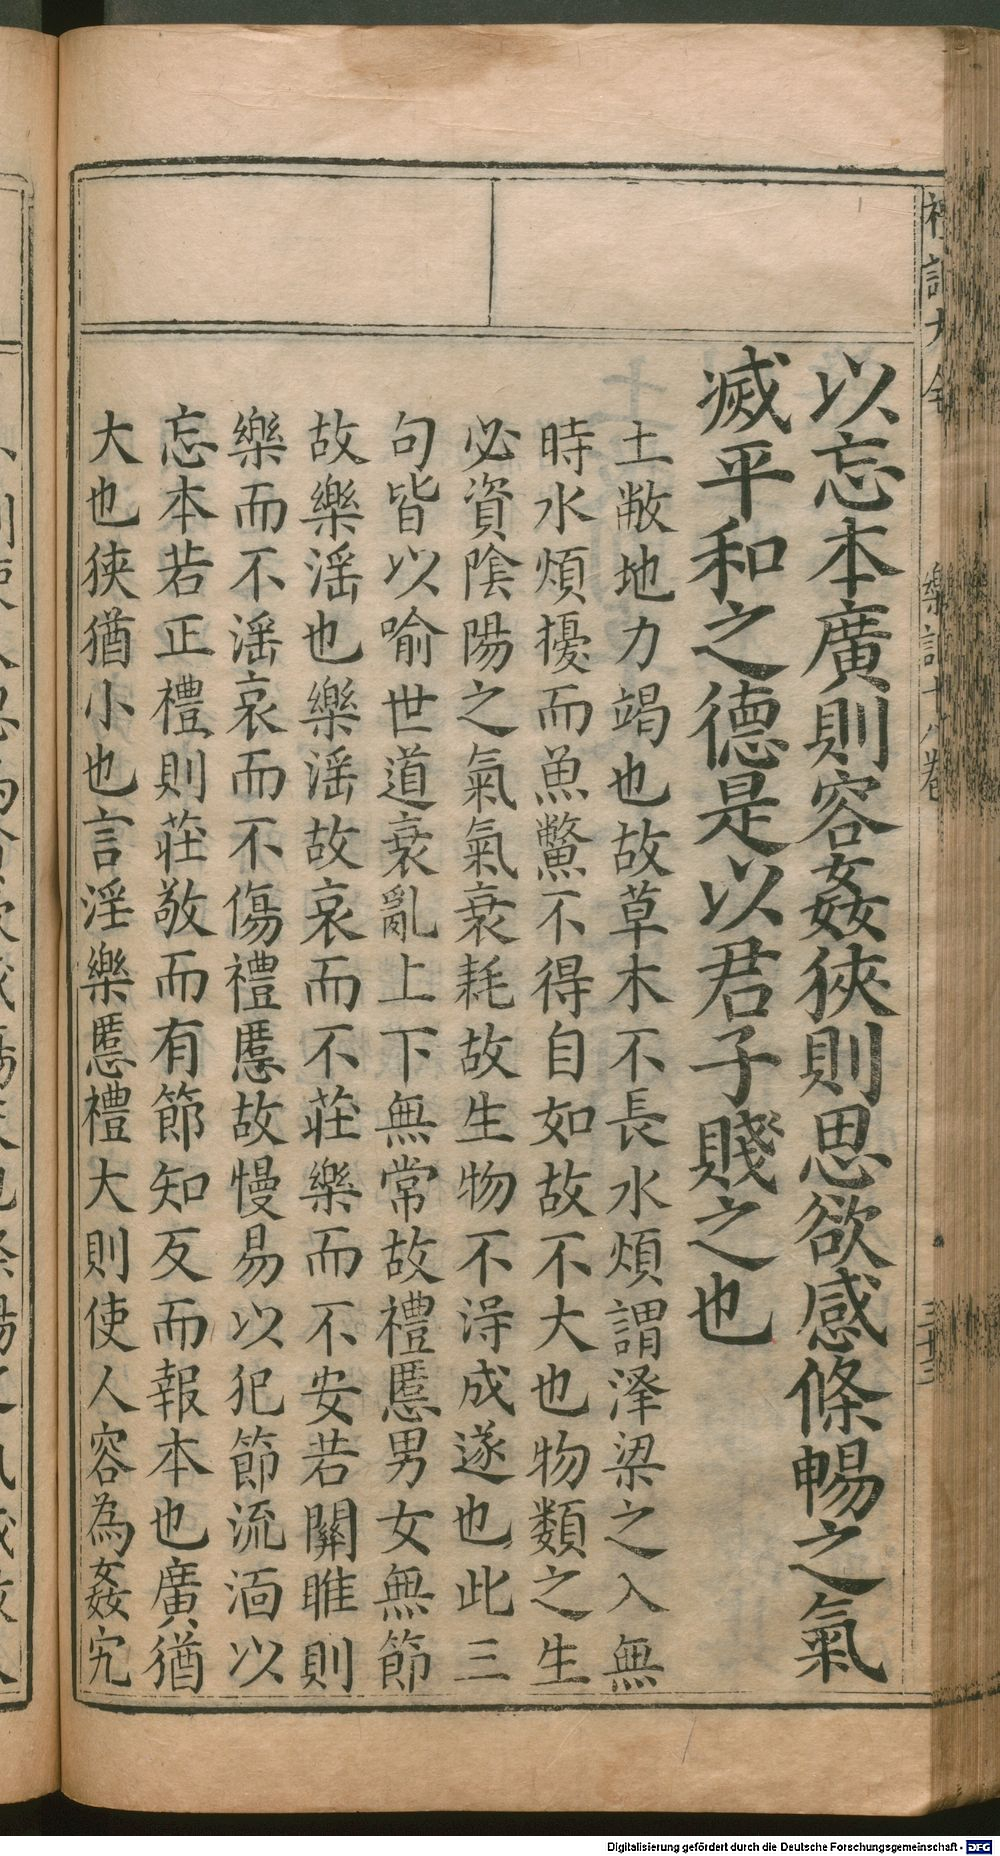 以忘本廣則容姦狹則思欲感條暢之氣
滅平和之德是以君子賤之也
土敝地力竭也故草木不長水煩謂澤梁之入無
時水煩擾而魚鱉不得自如故不大也物類之生
必資陰陽之氣氣衰耗故生物不得成遂也此三
句皆以喻世道衰亂上下無常故禮慝男女無節
故樂滛也樂滛故哀而不莊樂而不安若關雎則
樂而不滛哀而不傷禮慝故慢易以犯節流湎以
忘本若正禮則莊敬而有節知反而報本也廣猶
大也狹猶小也言淫樂慝禮大則使人容為姦宄
禮記大全
樂記十八卷
三十三
Digitalisierung gefördert durch die Deutsche Forschungsgemeinschaft - DFG